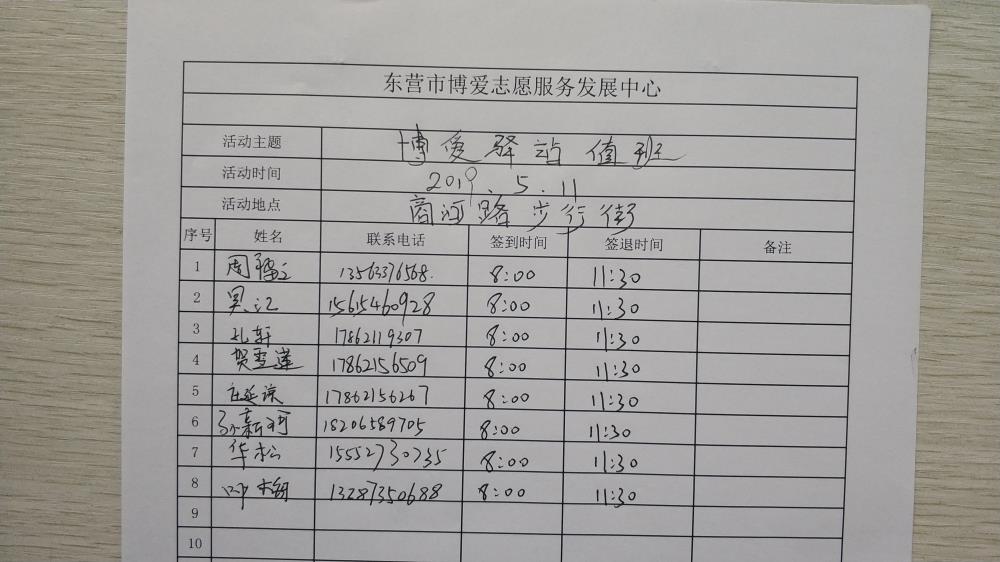 东营市博爱志愿服务发展中心
活动主题 博爱驿站值班
活动时间 2019.5.11
活动地点 商河路步行街
序号 姓名 联系电话 签到时间 签退时间 备注
1 13563376568. 8:00 11:30
2 吴江 15615460928 8:00 11:30
3 孔轩 17862119307 8:00 11:30
4 贺雪莲 17862156509 8:00 11:30
5 17862156267 8:00 11:30
6 18206589705 8:00 11:30
7 华松 15552730735 8:00 11:30
8 13287350688 8:00 11:30
9
10